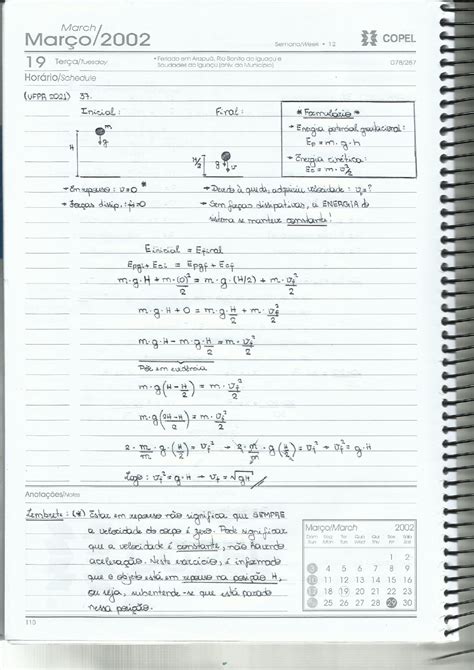 March
Março/2002
Semana/Week • 12
COPEL
19 Terça/Tuesday
• Feriado em Arapuã, Rio Bonito do Iguaçu e
Saudades do Iguaçu (aniv. do Município)
078/287
Horário/Schedule
(UFPR 2021) 37.
Inicial:
Final:
* Formulário *
→ Energia potencial gravitacional:
Ep = m·g·h
→ Energia cinética:
Ec = m·v²/2
m
g
H
H/2
g
v
→ Em repouso: v=0 *
→ Forças dissip.: f=0
→ Devido à queda, adquiriu velocidade: vf=?
→ Sem forças dissipativas, a ENERGIA do
sistema se manteve constante!
Einicial = Efinal
Epgi + Eci = Epgf + Ecf
m·g·H + m·(0)²/2 = m·g·(H/2) + m·vf²/2
m·g·H + 0 = m·g·H/2 + m·vf²/2
m·g·H - m·g·H/2 = m·vf²/2
Pôr em evidência
m·g(H-H/2) = m·vf²/2
m·g(2H-H/2) = m·vf²/2
2·m/m·g·(H/2) = vf² → 2·m/m·g(H/2) = vf² → vf² = g·H
Logo: vf² = g·H → vf = √gH
Anotações/Notes
Lembrete: (*) Estar em repouso não significa que SEMPRE
a velocidade do corpo é zero. Pode significar
que a velocidade é constante, não havendo
aceleração. Neste exercício, é informado
que o objeto está em repouso na posição H,
ou seja, subentende-se que está parado
nessa posição.
Março/March 2002
Dom Seg Ter Qua Qui Sex Sáb
Sun Mon Tue Wed Thu Fri Sat
1 2
3 4 5 6 7 8 9
10 11 12 13 14 15 16
17 18 19 20 21 22 23
24 25 26 27 28 29 30
31